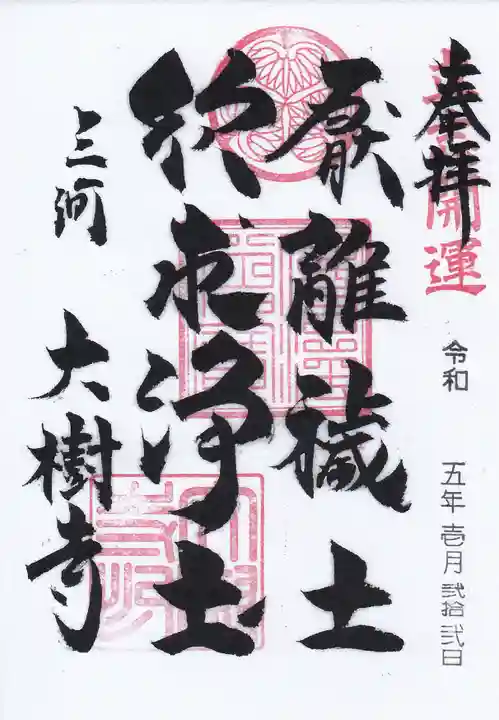 奉拝
開運
令和 五年 壱月 弐拾弐日
厭離穢土
欣求浄土
三河 大樹寺